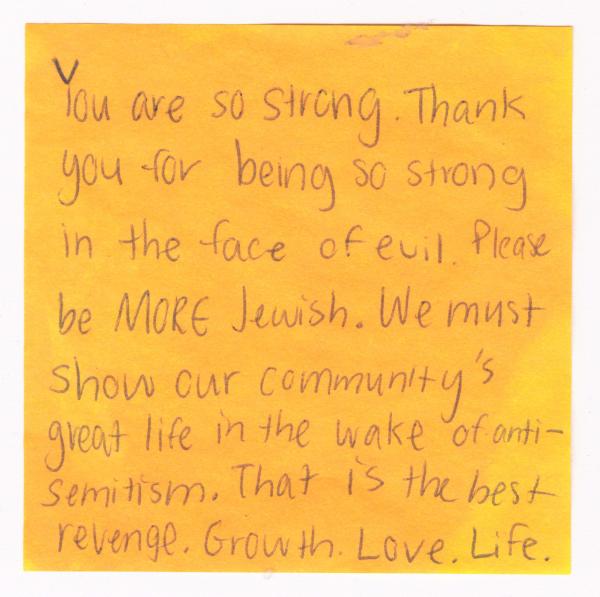 You are so strong. Thank
you for being so strong
in the face of evil. Please
be MORE Jewish. We must
show our community's
great life in the wake of anti-
semitism. That is the best
revenge. Growth. Love. Life.